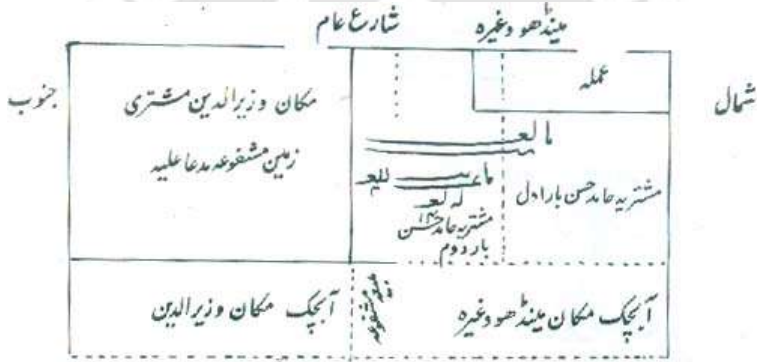 شارع عام
مینڈھو وغیرہ
جنوب
شمال
عملہ
مکان وزیرالدین مشتری
زمین مشفوعہ مدعا علیہ
مشتریہ حامد حسن بار اول
مشتریہ حامد حسن
بار دوم
آبچک مکان وزیرالدین
مشفوعہ
آبچک مکان مینڈھو وغیرہ